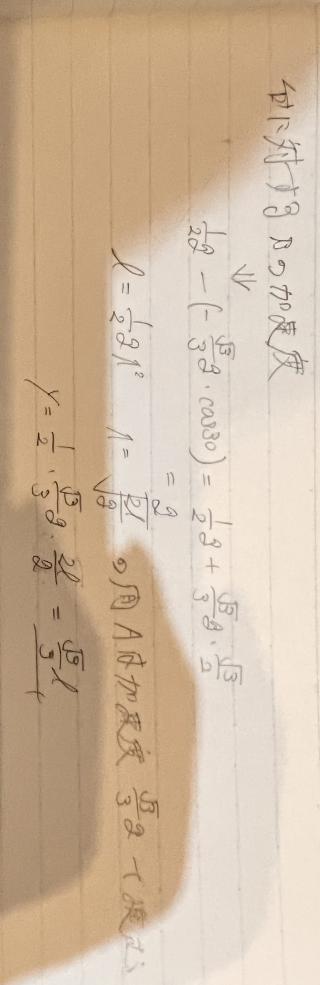 台に対するBの加速度
↓
1/2 g − (−√3/3 g · cos30) = 1/2 g + √3/3 g · √3/2
= g
l = 1/2 g t² t = √(2l/g) の間Aは加速度 √3/3 g で
x = 1/2 · √3/3 g · 2l/g = √3/3 l